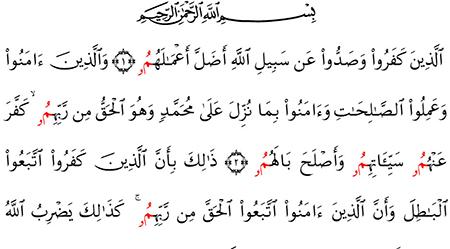 بِسْمِ اللَّهِ الرَّحْمَٰنِ الرَّحِيمِ
الَّذِينَ كَفَرُوا۟ وَصَدُّوا۟ عَن سَبِيلِ اللَّهِ أَضَلَّ أَعْمَـٰلَهُمُۥ ﴿١﴾ وَالَّذِينَ ءَامَنُوا۟
وَعَمِلُوا۟ الصَّـٰلِحَـٰتِ وَءَامَنُوا۟ بِمَا نُزِّلَ عَلَىٰ مُحَمَّدٍ وَهُوَ الْحَقُّ مِن رَّبِّهِمُۥ ۙ كَفَّرَ
عَنْهُمُۥ سَيِّـَٔاتِهِمُۥ وَأَصْلَحَ بَالَهُمُۥ ﴿٢﴾ ذَٰلِكَ بِأَنَّ الَّذِينَ كَفَرُوا۟ اتَّبَعُوا۟
الْبَـٰطِلَ وَأَنَّ الَّذِينَ ءَامَنُوا۟ اتَّبَعُوا۟ الْحَقَّ مِن رَّبِّهِمُۥ ۚ كَذَٰلِكَ يَضْرِبُ اللَّهُ